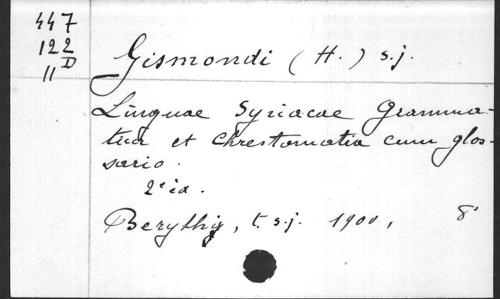 447
122
D
11
Gismondi (H.) s.j.
Linguae Syriacae Gramma-
tica et chrestomatia cum glos-
sario.
2e éd.
Berythi, t. s.j. 1900, 8°